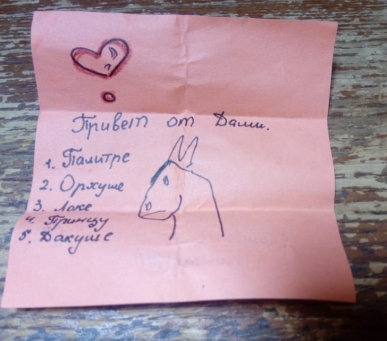 Привет от Дами.
1. Палитре
2. Орхуше
3. Локе
4. Принцу
5. Дакуше